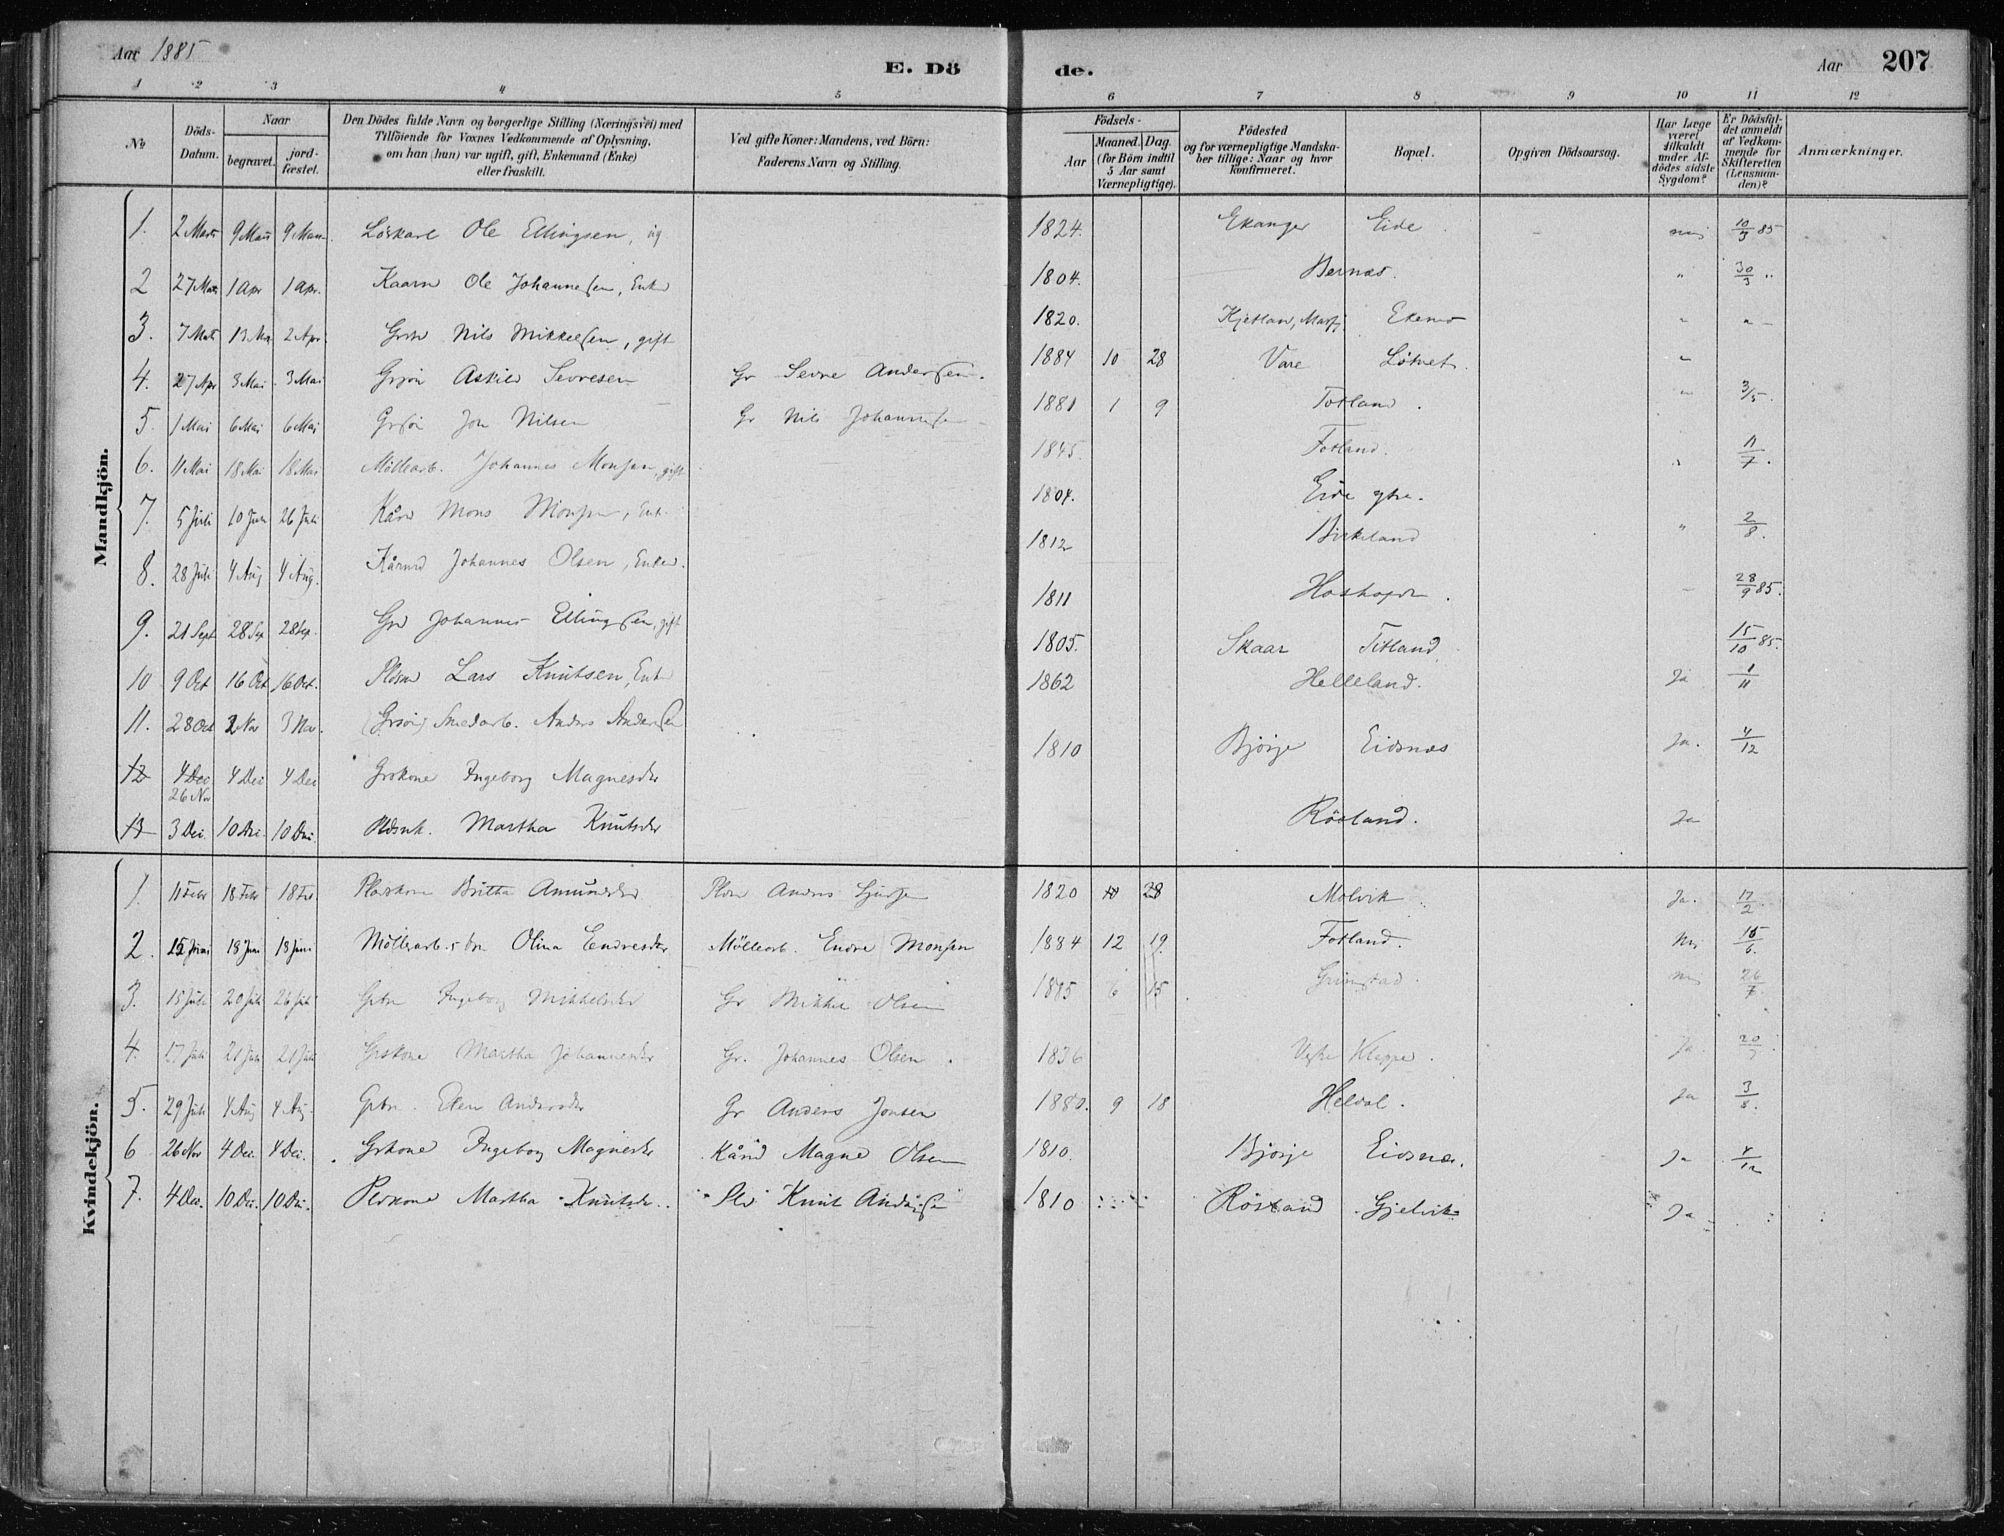 Aar 1885 E. Dö de. Aar 207
1 2 3 4 5 6 7 8 9 10 11 12
No
Döds-Datum.
Naar
begravet. jordfæstet.
Den Dödes fulde Navn og borgerlige Stilling (Næringsvei) med
Tilföiende for Voxnes Vedkommende af Oplysning,
om han (hun) var ugift, gift, Enkemand (Enke)
eller fraskilt.
Ved gifte Koner: Mandens, ved Börn:
Faderens Navn og Stilling.
Födsels-
Aar Maaned. Dag.
(for Börn indtil
5 Aar samt
Værnepligtige).
Födested
og for værnepligtige Mandska-
ber tillige: Naar og hvor
konfirmeret.
Bopæl.
Opgiven Dödsaarsag.
Har Læge
været
tilkaldt
under Af-
dödes sidste
Sygdom?
Er Dödsfal-
det anmeldt
af Vedkom-
mende for
Skifteretten
(Lensman-
den)?
Anmærkninger.
Mandkjön.
1. 2 Marts 9 Mars 9 Mars Löskarl Ole Ellingsen, ug 1824. Ekanger Eide nei 10/3 85
2 27 Mar 1 Apr 1 Apr. Kaarm Ole Johannesen, Enkem 1804. Bernæs. " 30/3 "
3. 7 Mats 13 Ma 2 Apr. Grm Nils Mikkelsen, gift 1820. Ekenes " "
4. 27 Apr 3 Mai 3 Mai Grsön Askild Sevresen Gr Sevre Andersen. 1884 10 28 Vare Lökvet "
5. 1 Mai 6 Mai 6 Mai Grsön Jon Nilsen Gr Nils Johannesen 1881 1 9 Totland. " 3/5.
6. 11 Mai 18 Mai 18 Mai Möllearb. Johannes Monsen, gift 1845. Fotland. " 11/7.
7. 5 Juli 10 Juli 26 Juli Kårm Mons Monsen, Enk. 1804. Eide ytre.
8. 28 Juli 4 Aug 4 Aug. Kårmd Johannes Olsen, Enkem. 1812 Birkeland " 2/8.
9. 21 Sept 28 Sep 28 Sep. Grd Johannes Ellingsen, gift 1811 Hoshovde. 28/9 85.
10 9 Oct 16 Oct 16 Oct. Pldsm Lars Knutsen, Enk 1805. Skaar Titland 15/10 85.
11. 28 Oct 2 Nov 3 Nov. Grsön Smedarb. Anders Andersen 1862 Helleland. Ja 1/11
12 4 Dec 26 Nov 4 Dec 4 Dec Grkone Ingeborg Magnesdr 1810 Bjørge Eidsnæs Ja. 4/12
13 3 Dec. 10 Dec. 10 Dec. Pldsk. Martha Knutsdr Rösland. Ja
Kvindekjön.
1. 11 Febr 18 Febr 18 Feb. Pladskone Britha Amundsdr Pldsm Anders 1820 10 28 Molvik Ja. 17/2
2. 15 Juni 18 Juni 18 Juni Möllearb.s dtr Olina Endresdr Möllearb. Endre Monsen 1884 12 19. Fotland. Nei 15/6.
3. 15 Juli 20 Juli 26 Juli Grdtr Ingeborg Mikkelsdr Gr Mikkel Olsen 1885 6 15 Grimstad nei 26/7.
4. 17 Juli 21 Juli 21 Juli Grskone Martha Johannesdr Gr. Johannes Olsen. 1836 Vestre Kleppe. Ja 20/7
5. 29 Juli 4 Aug 4 Aug. Grdtr. Elen Andersdr Gr Anders Jonsen 1880. 9 18 Heldal. Ja 3/8.
6 26 Nov 4 Dec. 4 Dec. Grkone Ingeborg Magnesdr Kårmd Magne Olsen 1810. Bjørge Eidsnæs. Ja 4/12
7. 4 Dec. 10 Dec. 10 Dec. Pldskone Martha Knutsdr. Pld Knut Andersen 1810 Rösland Gjelvik Ja